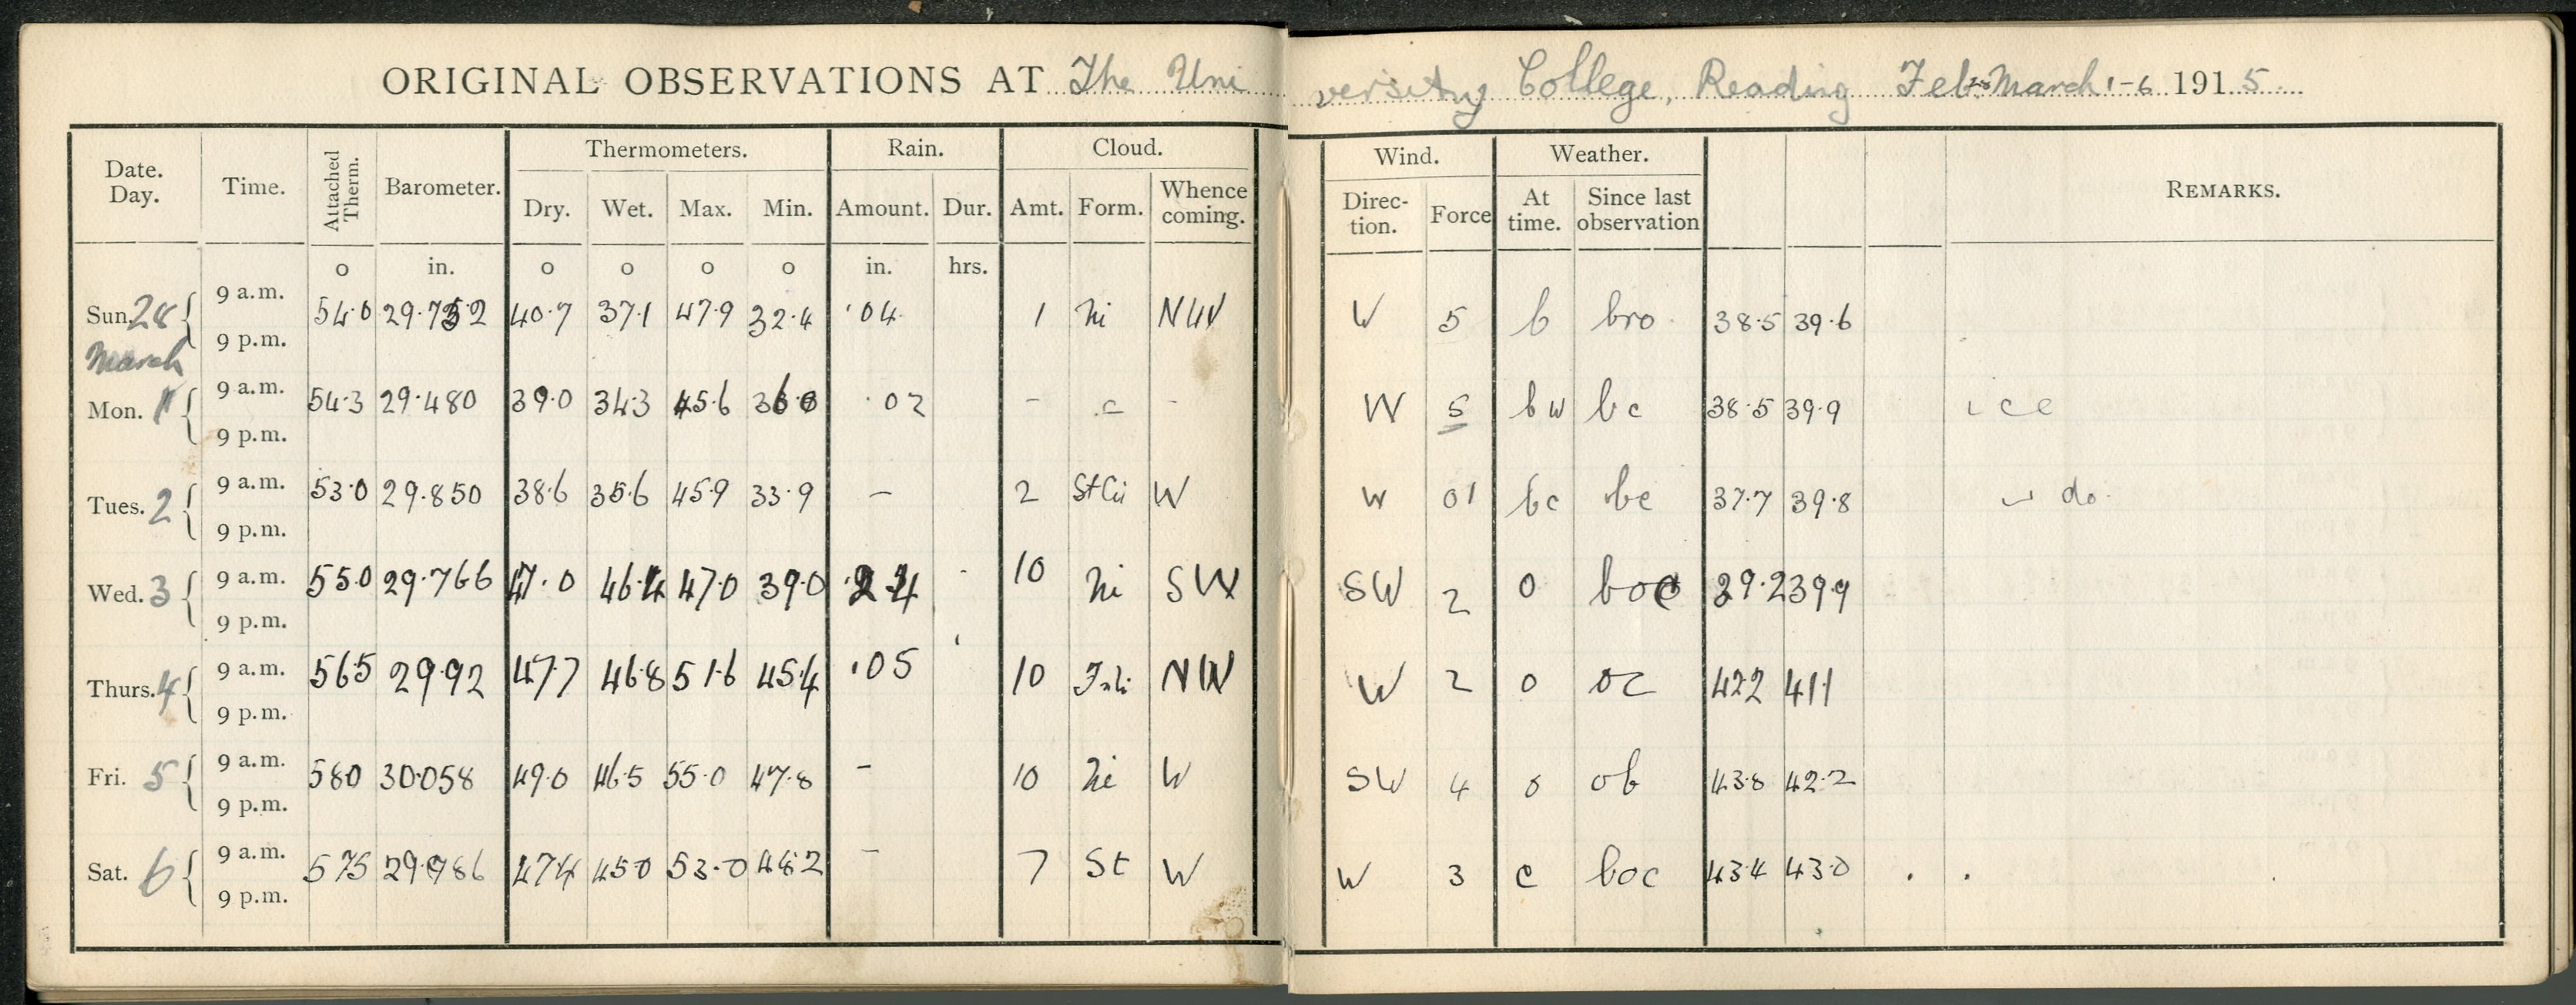 ORIGINAL OBSERVATIONS AT The University College, Reading Feb 28 March 1-6 1915
Date. Day. Time. Attached Therm. Barometer. Thermometers. Rain. Cloud. Wind. Weather. REMARKS.
Dry. Wet. Max. Min. Amount. Dur. Amt. Form. Whence coming. Direc-tion. Force At time. Since last observation
o in. o o o o in. hrs.
Sun. 28 9 a.m. 54.0 29.752 40.7 37.1 47.9 32.4 .04 1 Ni NW W 5 b bro 38.5 39.6
9 p.m.
March
Mon. 1 9 a.m. 54.3 29.480 39.0 34.3 45.6 36.0 .02 - - - W 5 bw bc 38.5 39.9 ice
9 p.m.
Tues. 2 9 a.m. 53.0 29.850 38.6 35.6 45.9 33.9 — 2 StCi W W 01 bc bc 37.7 39.8 do.
9 p.m.
Wed. 3 9 a.m. 55.0 29.766 47.0 46.4 47.0 39.0 .24 10 Ni SW SW 2 o boc 39.2 39.9
9 p.m.
Thurs. 4 9 a.m. 56.5 29.92 47.7 46.8 51.6 45.4 .05 10 NW W 2 o oc 42.2 41.1
9 p.m.
Fri. 5 9 a.m. 58.0 30.058 49.0 46.5 55.0 47.8 - 10 Ni W SW 4 o ob 43.8 42.2
9 p.m.
Sat. 6 9 a.m. 57.5 29.986 47.4 45.0 53.0 44.2 - 7 St W W 3 c boc 43.4 43.0
9 p.m.